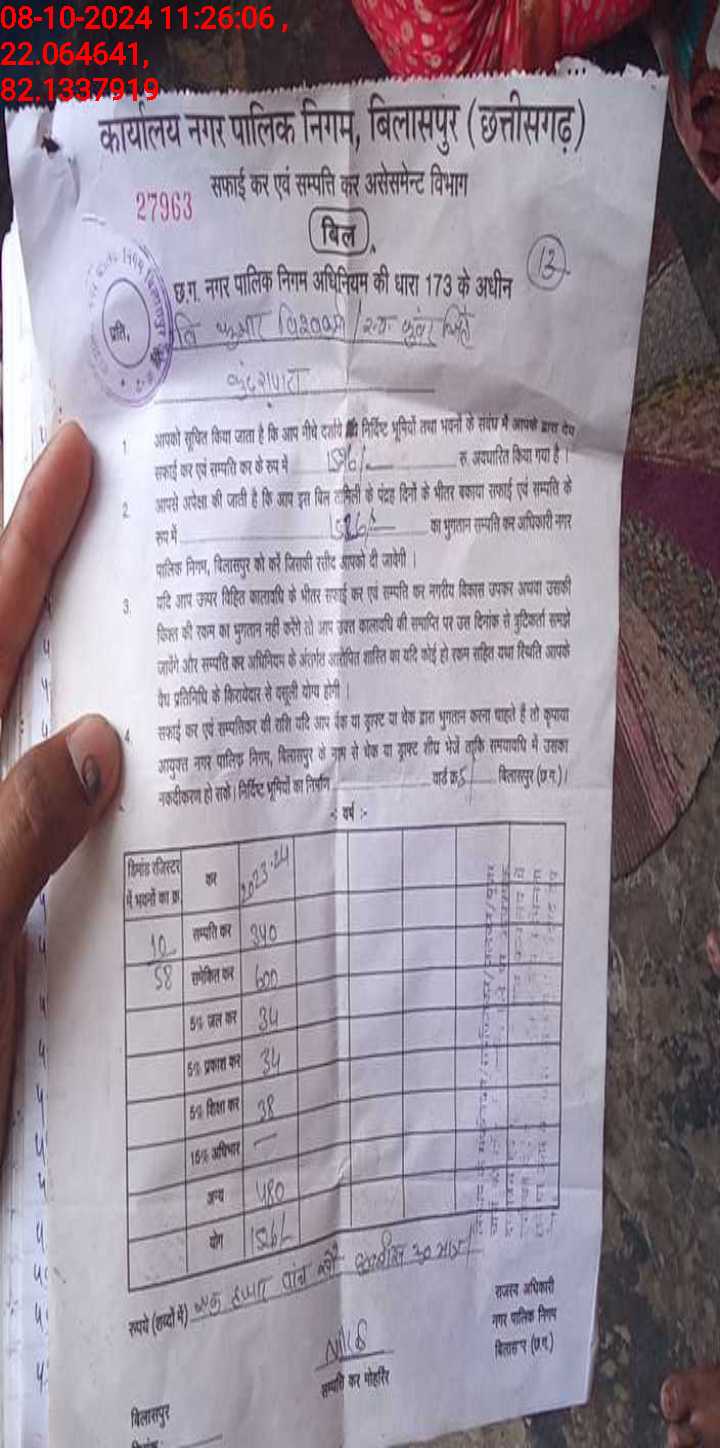 08-10-2024 11:26:06 ,
22.064641,
82.1337919
कार्यालय नगर पालिक निगम, बिलासपुर (छत्तीसगढ़)
सफाई कर एवं सम्पत्ति कर असेसमेन्ट विभाग
27963
बिल
13
छ.ग. नगर पालिक निगम अधिनियम की धारा 173 के अधीन
प्रति,
कुमार
1. आपको सूचित किया जाता है कि आप नीचे दर्शाये निर्दिष्ट भूमियों तथा भवनों के संबंध में आपके द्वारा देय
सफाई कर एवं सम्पत्ति कर के रूप में 1526/- रु. अवधारित किया गया है।
2. आपसे अपेक्षा की जाती है कि आप इस बिल तामिली के पंद्रह दिनों के भीतर बकाया सफाई एवं सम्पत्ति के
रूप में 1526/- का भुगतान सम्पत्ति कर अधिकारी नगर
पालिक निगम, बिलासपुर को करें जिसकी रसीद आपको दी जावेगी।
3. यदि आप ऊपर विहित कालावधि के भीतर सफाई कर एवं सम्पत्ति कर नगरीय विकास उपकर अथवा उसकी
किस्त की रकम का भुगतान नही करेंगे तो आप उक्त कालावधि की समाप्ति पर उस दिनांक से त्रुटिकर्ता समझे
जावेंगे और सम्पत्ति कर अधिनियम के अंतर्गत आरोपित शास्ति का यदि कोई हो रकम सहित यथा स्थिति आपके
वैध प्रतिनिधि के किरायेदार से वसूली योग्य होगी।
4. सफाई कर एवं सम्पत्तिकर की राशि यदि आप बैंक या ड्राफ्ट या चेक द्वारा भुगतान करना चाहते हैं तो कृपया
आयुक्त नगर पालिक निगम, बिलासपुर के नाम से चेक या ड्राफ्ट शीघ्र भेजें ताकि समयावधि में उसका
नकदीकरण हो सके। निर्दिष्ट भूमियों का निर्धारण वार्ड क्र. 51 बिलासपुर (छ.ग.)।
-: वर्ष :-
डिमांड रजिस्टर में भवनों का क्र. कर 2023-24
10 सम्पत्ति कर 340
58 समेकित कर 600
5% जल कर 34
5% प्रकाश कर 34
5% शिक्षा कर 38
15% अधिभार -
अन्य 480
योग 1526/-
रूपये (शब्दों में) एक हजार पांच सौ छब्बीस रु० मात्र/
राजस्व अधिकारी
नगर पालिक निगम
बिलासपुर (छ.ग.)
सम्पत्ति कर मोहर्रिर
बिलासपुर
दिनांक